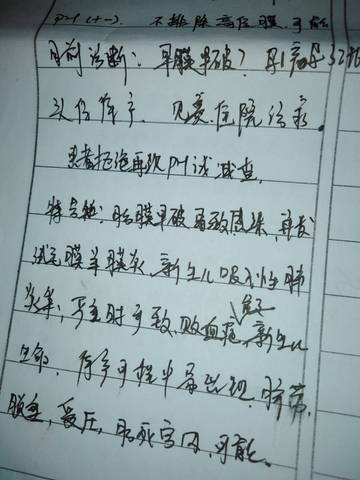 PH(+-). 不排除高位破可能
目前诊断:早膜早破? 孕1产0孕32+6
头位待产. 见表.住院治疗.
患者拒绝再次PH试纸检查.
特告知:胎膜早破易致感染,再发
绒毛膜羊膜炎,新生儿吸入性肺
炎等,严重时可致败血症,危及新生儿
生命. 待产过程中易出现脐带
脱垂,受压,胎死宫内,可能.